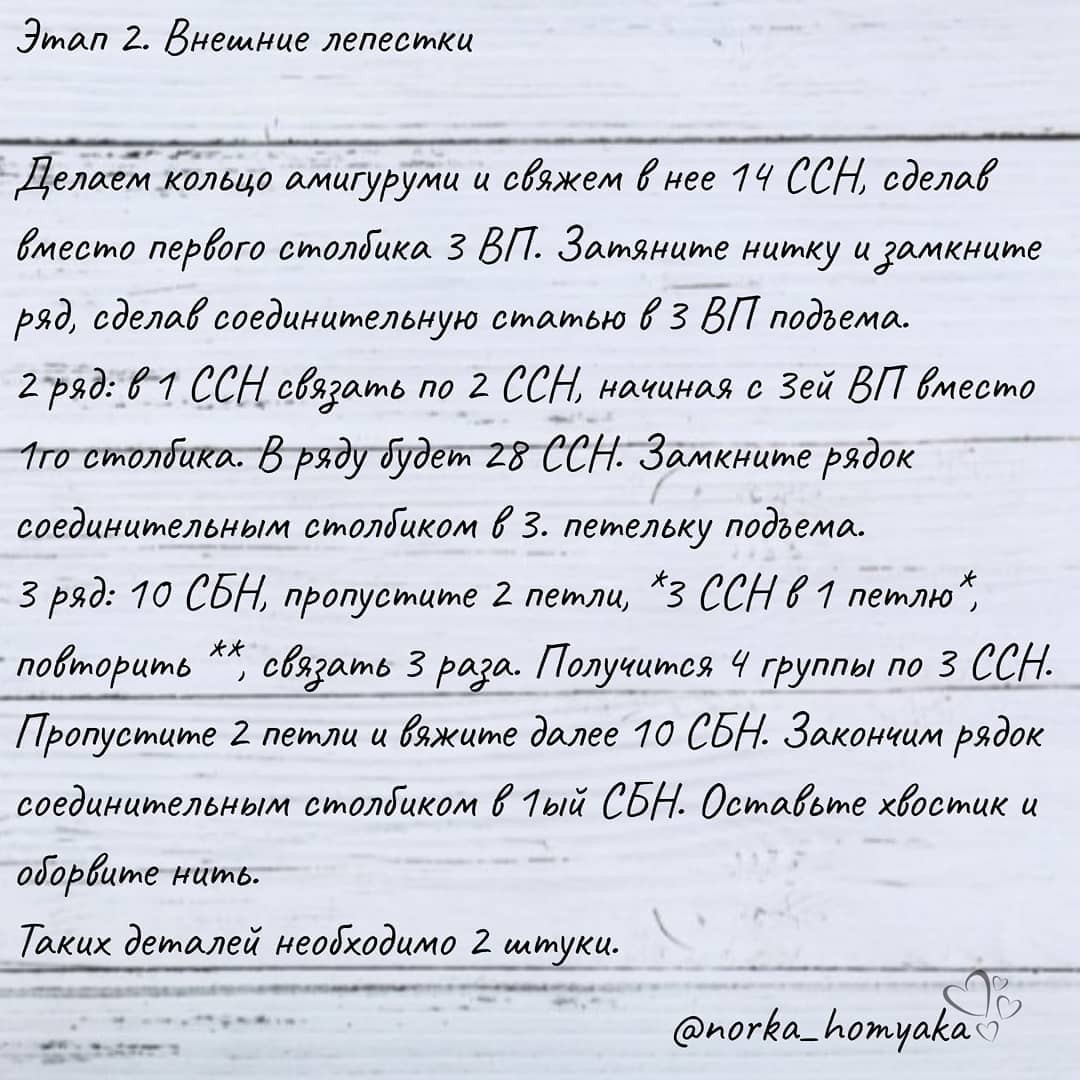 Этап 2. Внешние лепестки
Делаем кольцо амигуруми и свяжем в нее 14 ССН, сделав
вместо первого столбика 3 ВП. Затяните нитку и замкните
ряд, сделав соединительную статью в 3 ВП подъема.
2 ряд: в 1 ССН связать по 2 ССН, начиная с 3ей ВП вместо
1го столбика. В ряду будет 28 ССН. Замкните рядок
соединительным столбиком в 3. петельку подъема.
3 ряд: 10 СБН, пропустите 2 петли, *3 ССН в 1 петлю*,
повторить **, связать 3 раза. Получится 4 группы по 3 ССН.
Пропустите 2 петли и вяжите далее 10 СБН. Закончим рядок
соединительным столбиком в 1ый СБН. Оставьте хвостик и
оборвите нить.
Таких деталей необходимо 2 штуки.
@norka_homyaka